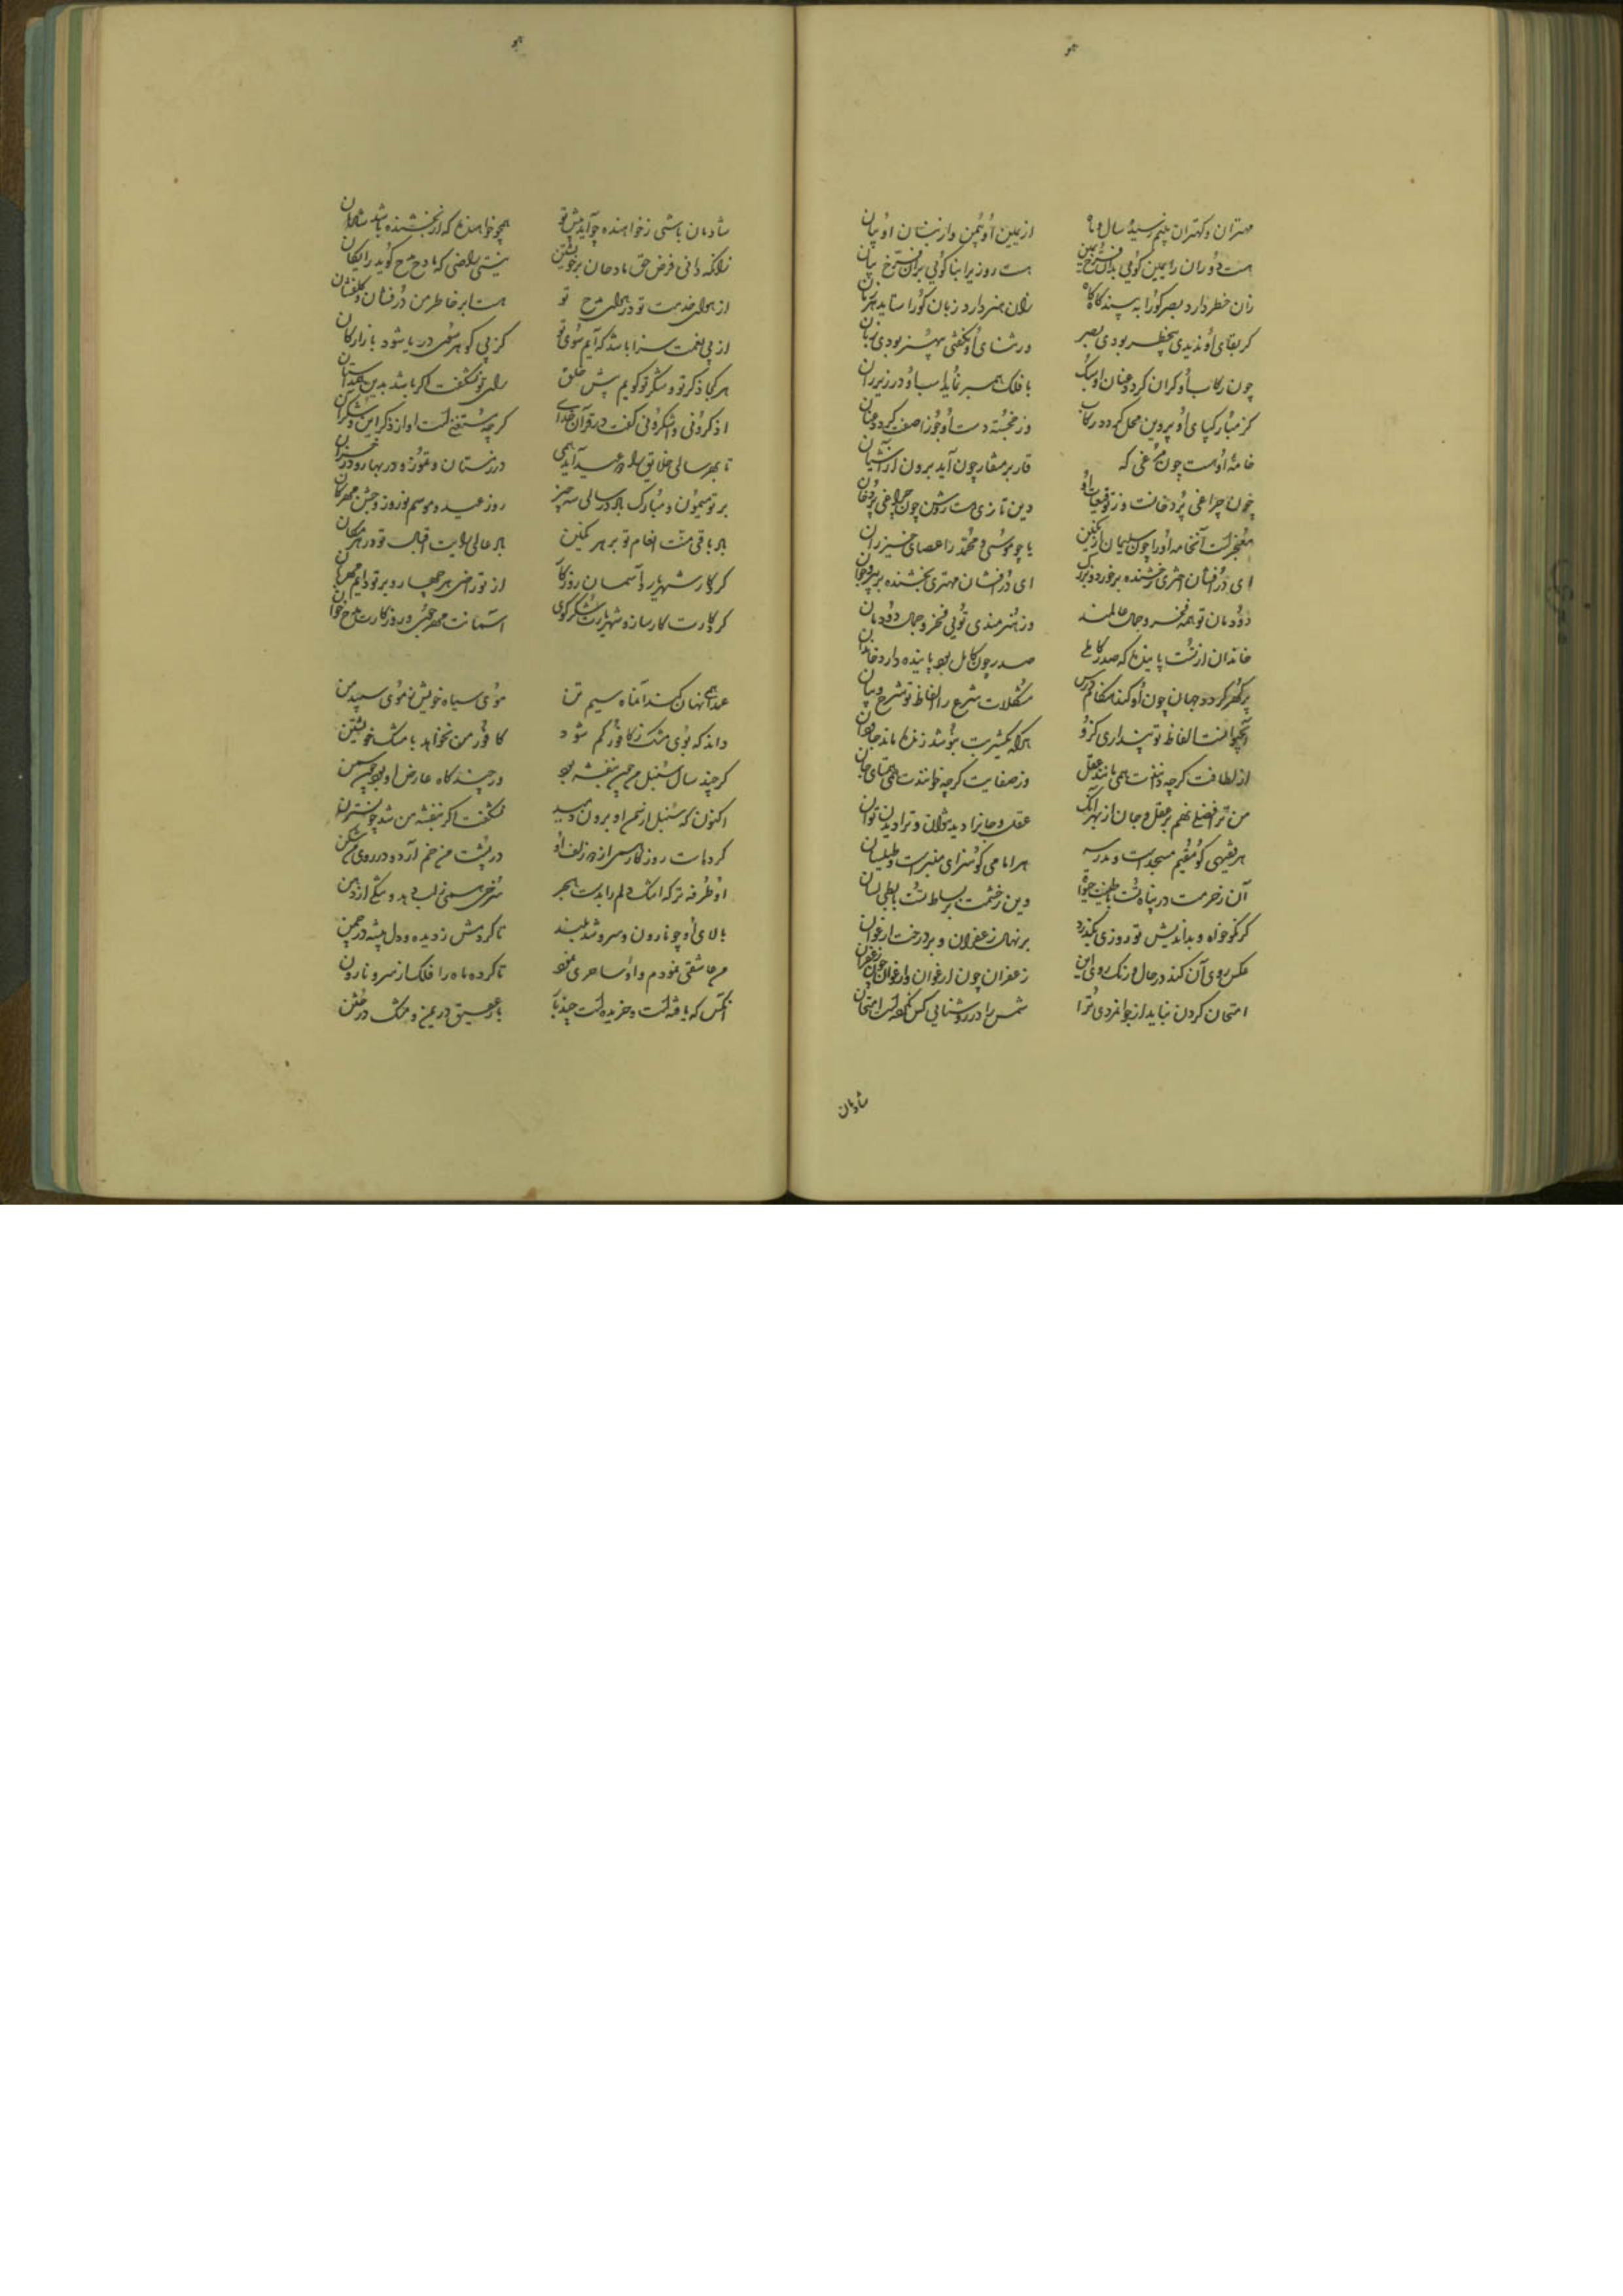 مهتران و کهتران بینم رسیده سال و ماه
از یمین او یمن و از بنان او بیان
هست دوران را یمین گوئی بدان فرخ یمین
هست روزیرا بنا گوئی بران فرخ بنان
زان خطر دارد بصر کورا به بیند گاه گاه
زان هنر دارد زبان کورا ستاید هر زمان
گر بقای او ندیدی بیخطر بودی بصر
ور ثنای او نگفتی بیهنر بودی زبان
چون رکاب او گران گردد عنان او سبک
با فلک همبر نماید اسب او در زیر ران
کز مبارک پای او پروین محل گردد رکاب
وز خجسته دست او جوزا صفت گردد عنان
خامه او هست چون مرغی که
قار بر منقار چون آید برون از آشیان
چون چراغی پر دخانست و ز توقیعات او
دین تازی هست روشن چون چراغی پر دخان
معجز است آنخامه او را چون سلیمان را نگین
یا چو موسی و محمد را عصای خیزران
ای درفشان اختری رخشنده بر خورد و بزرگ
ای درافشان مهتری بخشنده بر پیر و جوان
دودمان تو همه فخر و جمال عالمند
وز هنرمندی توئی فخر و جمال دودمان
خاندان از تست پاینده که صدر کاملی
صدر چون کامل بود پاینده دارد خاندان
پر گهر گردد جهان چون او کند هنگام درس
مشکلات شرع را الفاظ تو شرح و بیان
آبحیوانست الفاظ تو پنداری کزو
هر که یکشربت بنوشد زنده ماند جاودان
از لطافت گرچه دانندت همی مانند عقل
وز صفایت گرچه خوانندت همی همتای جان
من ترا فضل نهم بر عقل و جان از بهر آنک
عقل و جانرا دید نتوان و ترا دیدن توان
هر فقیهی کو مقیم مسجد است و مدرسه
هر امامی کو سزای منبر است و طیلسان
آن ز حرمت در پناه تست با طیب حیوة
وین ز حشمت بر بساط تست با بطی لسان
گر نکوخواه و بداندیش تو روزی بگذرد
بر نهال زعفران و بر درخت ارغوان
عکس روی آن کند در حال و رنگ روی این
زعفران چون ارغوان و ارغوان چون زعفران
امتحان کردن نباید از جوانمردی ترا
شمس را در روشنایی کس نکرده است امتحان
شادمان
شادمان باشی ز خواهنده چو آید پیش تو
همچو خواهنده که از بخشنده باشد شادمان
زانکه دانی فرض حق مادحان بر خویشتن
نیستی راضی که مادح مدح گوید رایگان
از هوای خدمت تو در هوای مدح تو
هست ابر خاطر من درفشان و گلفشان
از پی نعمت سزا باشد که آیم سوی تو
کز پی گوهر سوی دریا شود بازارگان
هر کجا ذکر تو و شکر تو گویم پیش خلق
رای تو نشگفت اگر باشد بدین همداستان
اذکرونی واشکرونی گفت در قرآن خدای
گرچه مستغنی است او از ذکر این و شکر آن
تا بهر سالی خلایق را دو عید آید همی
در زمستان و تموز و در بهار و در خزان
بر تو میمون و مبارک باد در سالی سه چیز
روز عید و موسم نوروز و جشن مهرگان
باد باقی منت انعام تو بر هر مکین
باد عالی رایت اقبال تو در هر مکان
کردگار شهریار و آسمان و روزگار
از تو راضی هر چهار و بر تو دایم مهربان
کردگارت کارساز و شهریارت شکرگوی
آسمانت مهرجوی و روزگارت مدح خوان
عمدا همی نهان کند آنماه سیم تن
موی سیاه خویش ز موی سپید من
داند که بوی مشک ز کافور کم شود
کافور من نخواهد با مشک خویشتن
گر چند سال سنبل من چین بنفشه بود
ور چندگاه عارض او بود چون سمن
اکنون که سنبل از سمن او برون دمید
نشگفت اگر بنفشه من شد چو نسترن
کرد است روزگار سر از در زلف او
در پشت من خم آرد و در روی من شکن
او طرفه تر که اشک دلم را بدست هجر
سرخی همی ز لب دهد و تنگی از دهن
بالای او چو نارون و سرو شد بلند
تا کردمش ز دیده و دل بیشه در چمن
من عاشقی نمودم و او ساحری نمود
تا کرده ماه را فلک از سرو نارون
آنکس که یافته است و خریده است چند بار
بار عقیق در یمن و مشک در ختن